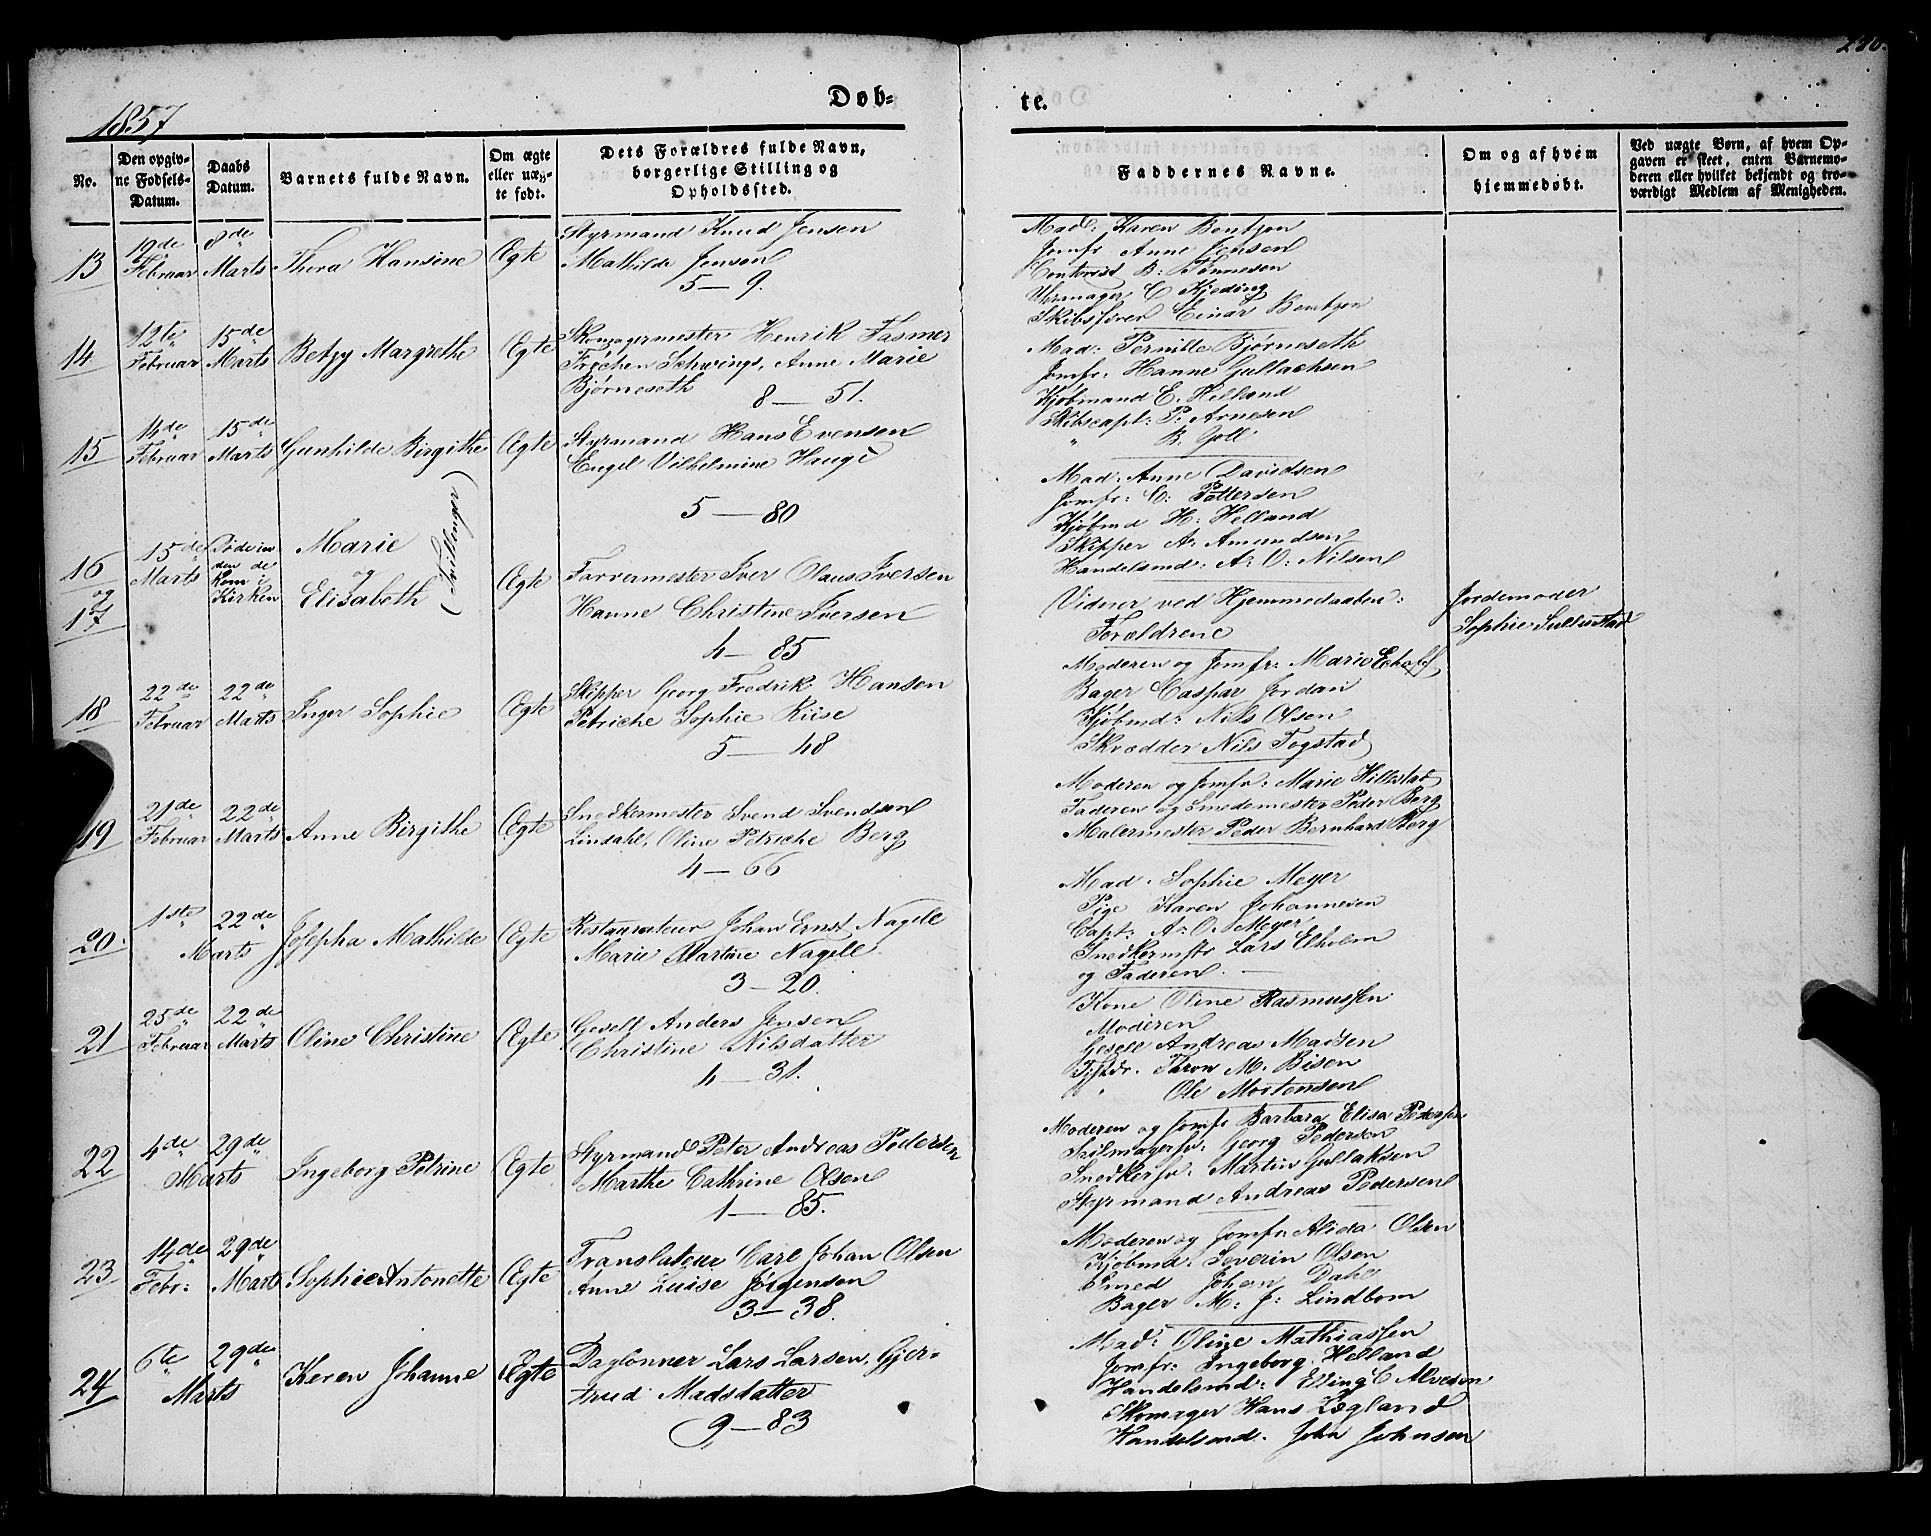 1857
Døb-
te.
No.
Den opgiv-
ne Fødsels-
Datum.
Daabs
Datum.
Barnets fulde Navn.
Om ægte
eller uæg-
te født.
Dets Forældres fulde Navn,
borgerlige Stilling og
Opholdssted.
Faddernes Navne.
Om og af hvem
hjemmedøbt.
Ved uægte Børn, af hvem Op-
gaven er skeet, enten Barnemo-
deren eller hvilket bekjendt og tro-
værdigt Medlem af Menigheden.
13
19de Februar
8de Marts
Thora Hansine
Ægte
Styrmand Knud Jensen
Mathilde Jensen
5 — 9.
Mad: Karen Bentzon
Jomfr Anne Jensen
Contorist B: Tønnesen
Uhrmager C Kjeding
Skibsfører Einar Bentzon
14
12te Februar
15de Marts
Betzy Margrethe
Ægte
Skomagermester Henrik Fasmer
Frichen Schwings, Anne Marie
Bjørneseth
8 — 51.
Mad: Pernille Bjørneseth
Jomfr: Hanne Gullachsen
Kjøbmand E. Helland
Skibscapt: P. Arnesen
" B. Joll
15
14de Februar
15de Marts
Gunhilde Birgithe
Ægte
Styrmand Hans Evensen
Engel Vilhelmine Hauge
5 — 80
Mad: Anne Davidsen
Jomfr: C: Pettersen
Kjøbmd H: Helland
Skipper A: Amundsen
Handelsmd: A: O: Nilsen
16
og
17
15de Marts
Døde in-
den de
kom i
Kirken
Marie
og
Elisabeth
(Tvillinger)
Ægte
Farvermester Iver Olaus Iversen
Hanne Christine Iversen
4 — 85
Vidner ved Hjemmedaaben:
Forældrene
Jordemoder
Sophie
18
22de Februar
22de Marts
Inger Sophie
Ægte
Skipper Georg Fredrik Hansen
Petriche Sophie Riise
5 — 48
Moderen og Jomfr: Marie Echoff
Bager Caspar Jordan
Kjøbmd: Nils Olsen
Skrædder Nils Togstad
19
21de Februar
22de Marts
Anne Birgithe
Ægte
Snedkermester Svend Svendsen
Lindahl, Oline Petriche Berg
4 — 66
Moderen og Jomfr: Marie Hillestad
Faderen og Smedemester Peder Berg
Malermester Peder Bernhard Berg
20.
1ste Marts
22de
Josepha Mathilde
Ægte
Restaurateur Johan Ernst Nagell
Marie Martine Nagell
3 — 20.
Mad. Sophie Meyer
Pige Karen Johannesen
Capt: A: O. Meyer
Snedkermstr Lars Elholm
og Faderen.
21
25de Februar
22de Marts
Oline Christine
Ægte
Gesell Anders Jensen
Christine Nilsdatter
4 — 31.
Kone Oline Rasmussen
Moderen
Gesell Andreas Madsen
M. Bisen
" Ole Mortensen
22
4de
29de
Marts
Ingeborg Petrine
Ægte
Styrmand Peter Andreas Pedersen
Marthe Cathrine Olsen
1 — 85.
Moderen og Jomfr Barbara Elisa Pedersen
Seilmagersv. Georg Pedersen
Snedkersv. Martin Gullaksen
Styrmand Andreas Pedersen
23
14de Febr:
29de Marts
Sophie Antonette
Ægte
Translateur Carl Johan Olsen
Anne Luise Jørgensen
3 — 38.
Moderen og Jomfr Alida Olsen
Kjøbmd: Severin Olsen
Smed Johan Dahl
Bager M: J: Lindbom
24
6te
29de
Marts
Keren Johanne
Ægte
Daglønner Lars Larsen, Gjer-
trud Madsdatter
9 — 83
Mad: Oline Mathiassen
Jomfr: Ingeborg Helland
Handelsmd: Elling C Alvesen
Skomager Hans Lægland
Handelsmd. John Johnsen